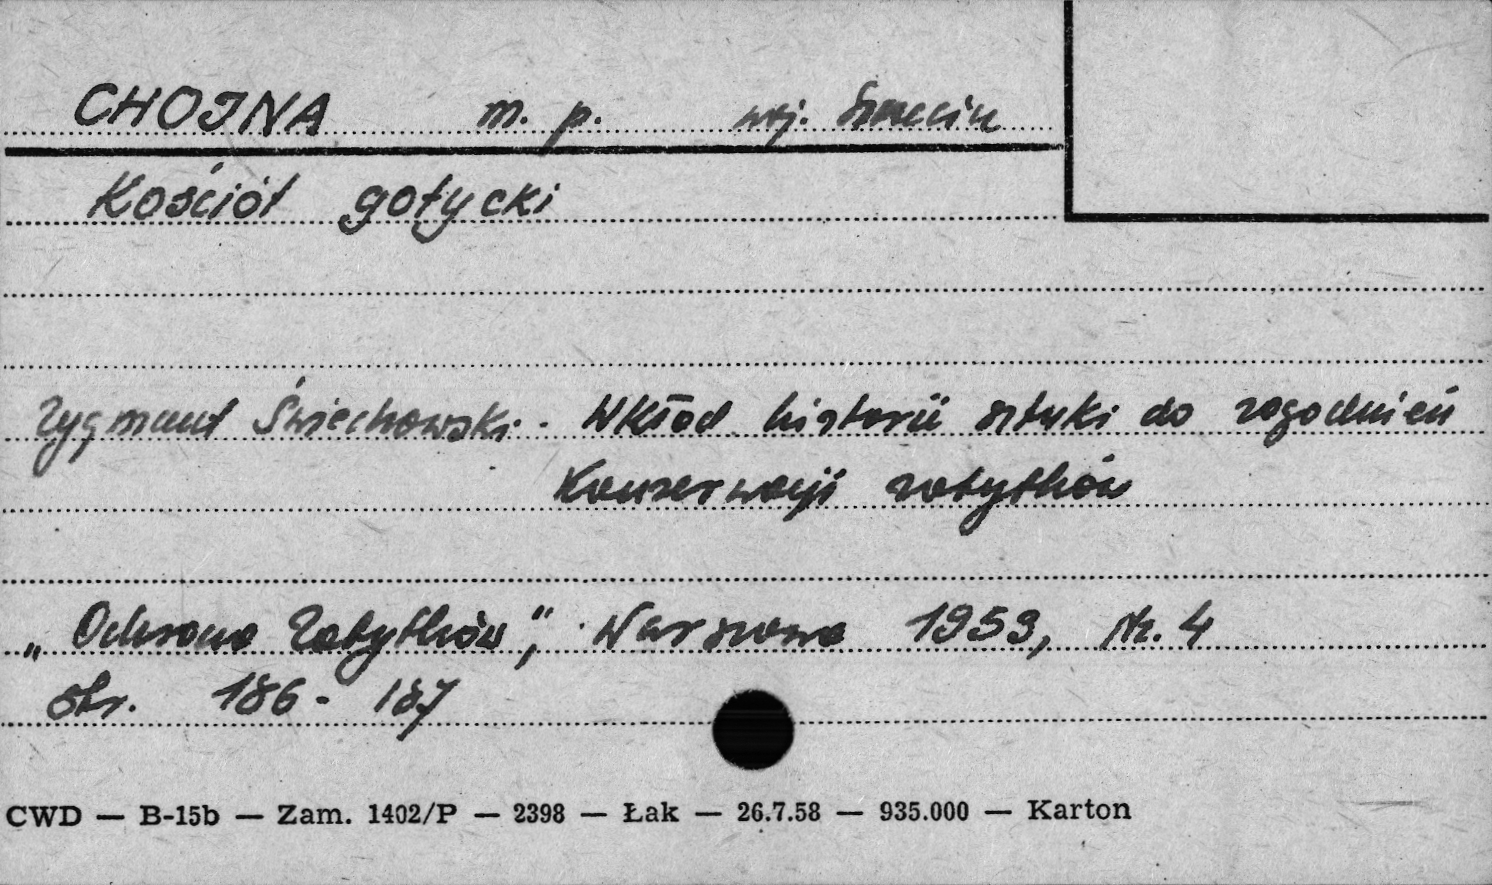 CHOJNA m. p. woj. Szczecin
Kościół gotycki
Zygmunt Świechowski - Wkład historii sztuki do zagadnień
Konserwacji zabytków
„Ochrona Zabytków", Warszawa 1953, Nr. 4
str. 186 - 187
CWD — B-15b — Zam. 1402/P — 2398 — Łak — 26.7.58 — 935.000 — Karton